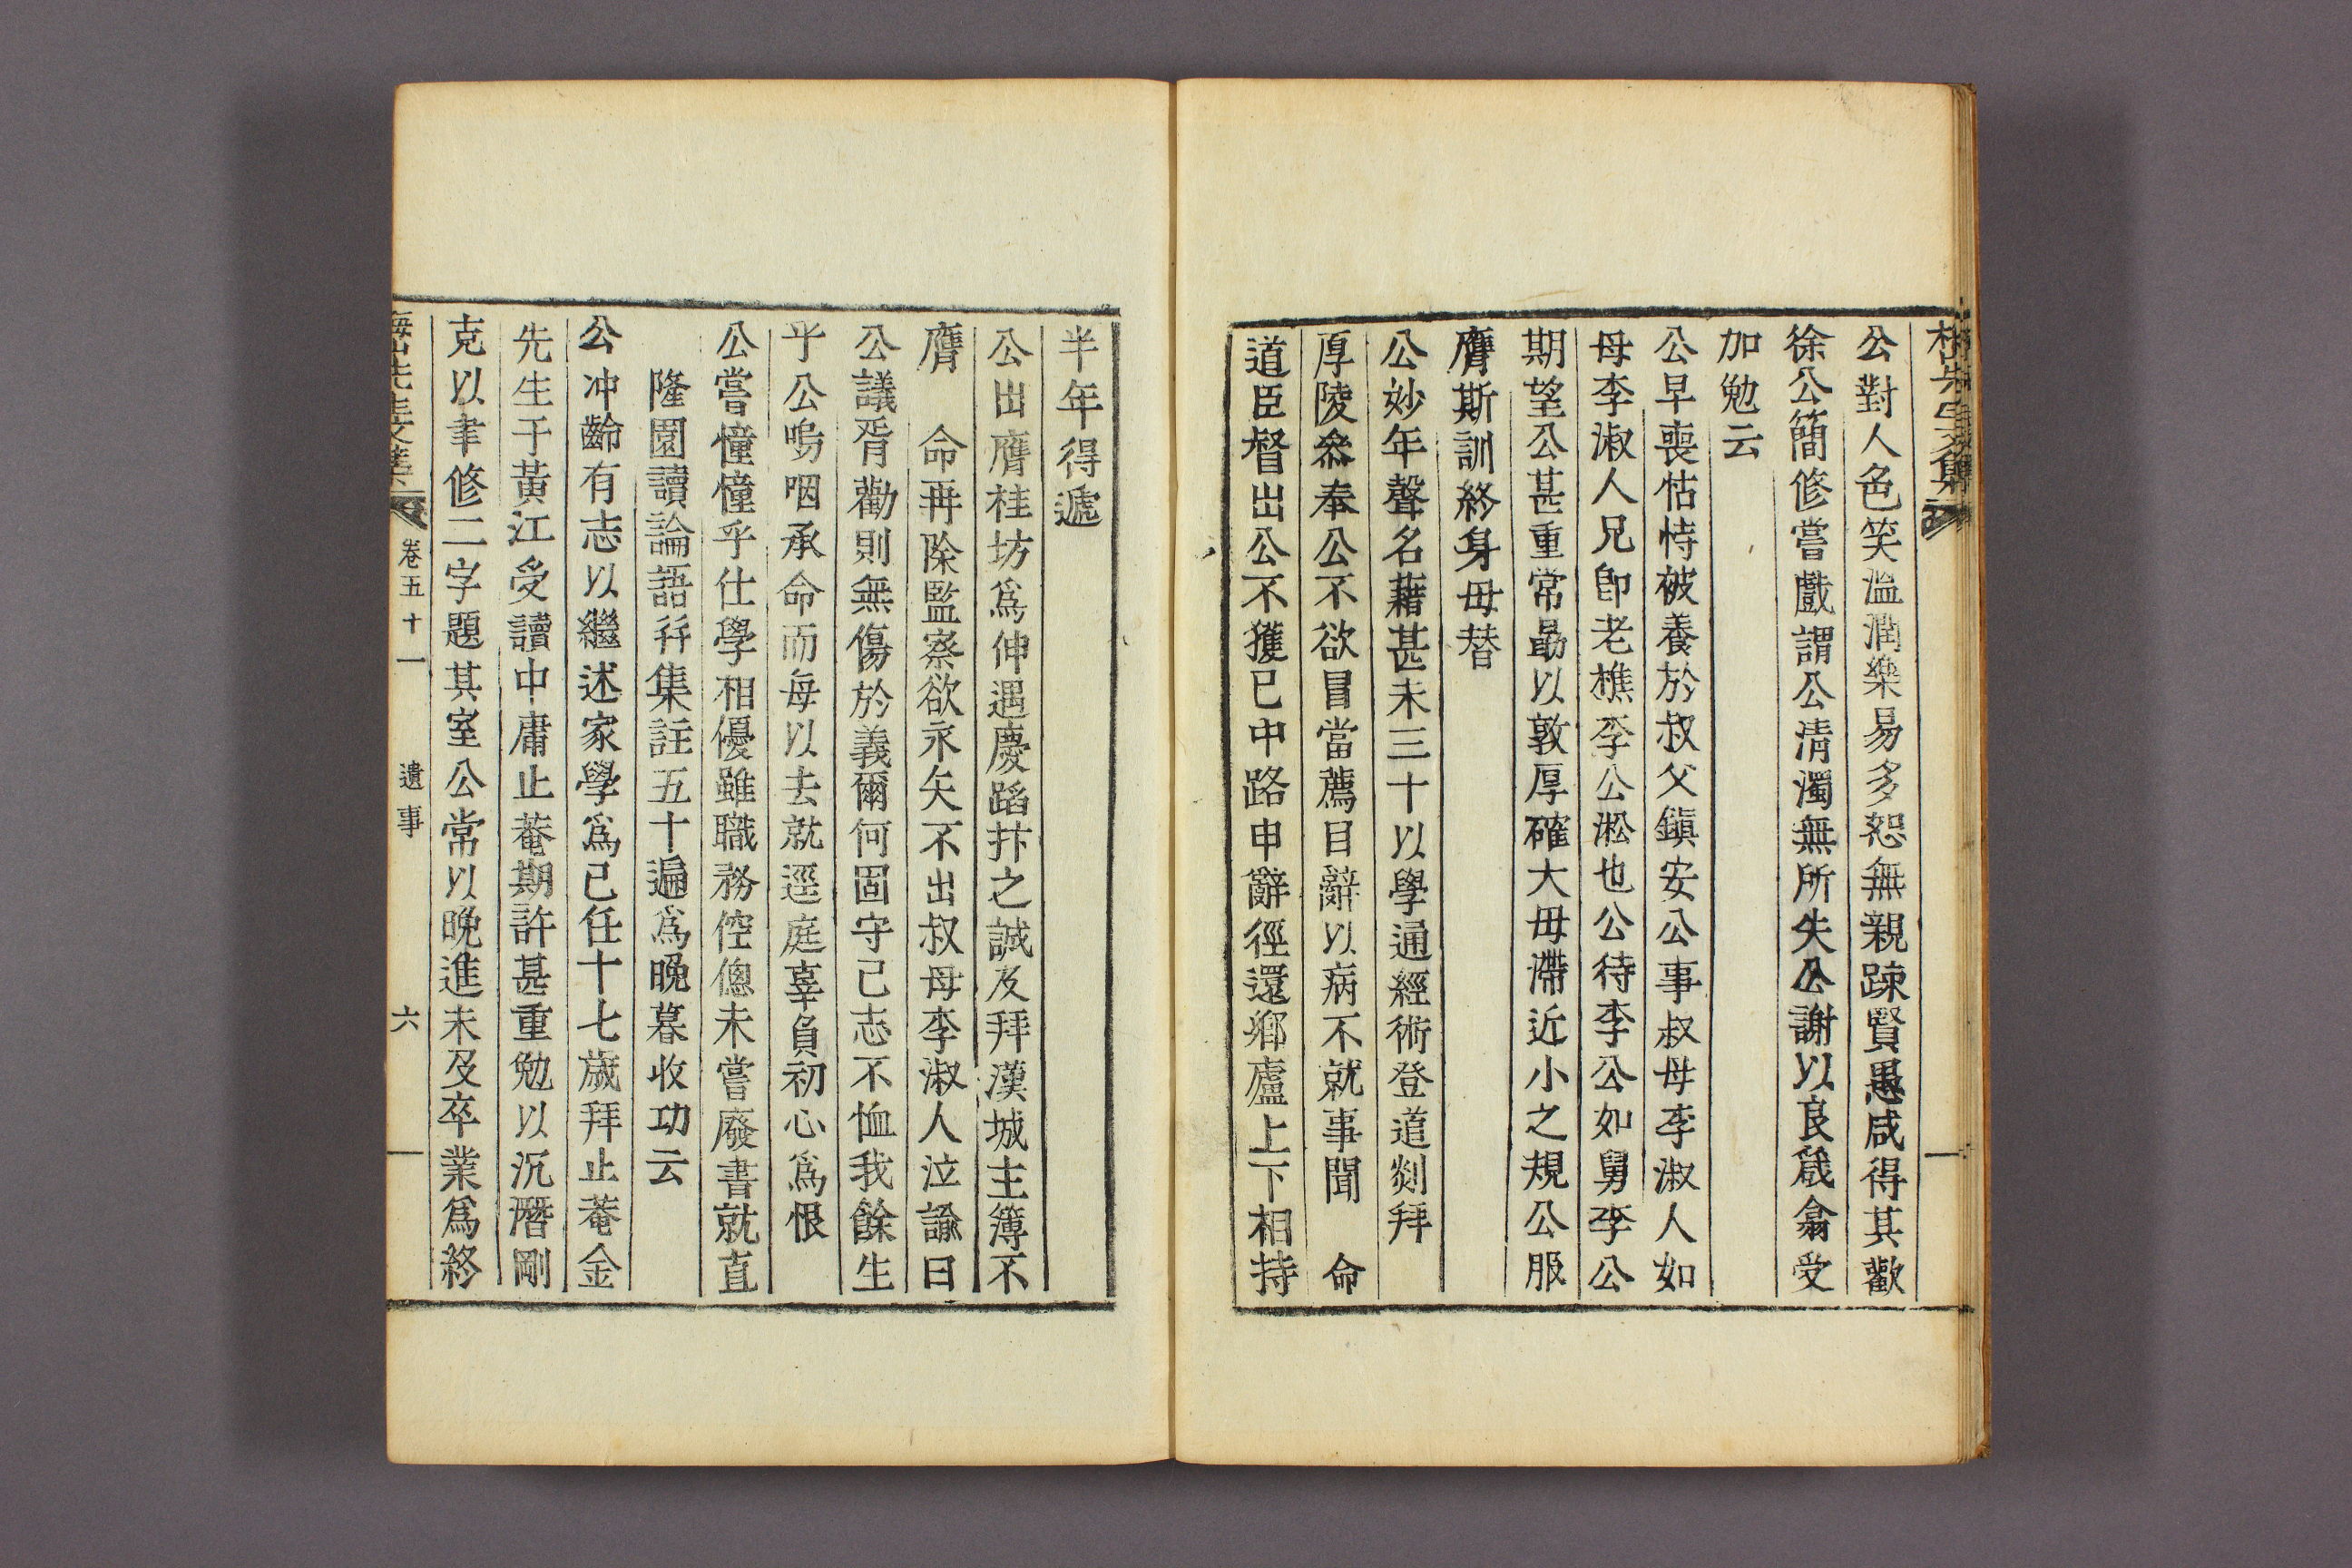 公對人色笑溫潤樂易多恕無親踈賢愚咸得其歡
徐公簡修嘗戲謂公淸濁無所失公謝以良箴翕受
加勉云
公早喪怙恃被養於叔父鎭安公事叔母李淑人如
母李淑人兄卽老樵李公淞也公待李公如舅李公
期望公甚重常勗以敦厚確大毋滯近小之規公服
膺斯訓終身毋替
公妙年聲名藉甚未三十以學通經術登道剡拜
厚陵叅奉公不欲冒當薦目辭以病不就事聞 命
道臣督出公不獲已中路申辭徑還鄕廬上下相持
半年得遞
公出膺桂坊爲伸遇慶蹈抃之誠及拜漢城主簿不
膺 命再除監察欲永矢不出叔母李淑人泣諭曰
公議胥勸則無傷於義爾何固守己志不恤我餘生
乎公嗚咽承命而每以去就逕庭辜負初心爲恨
公嘗憧憧乎仕學相優雖職務倥傯未嘗廢書就直
隆園讀論語幷集註五十遍爲晚暮收功云
公冲齡有志以繼述家學爲己任十七歲拜止菴金
先生于黃江受讀中庸止菴期許甚重勉以沉潛剛
克以聿修二字題其室公常以晚進未及卒業爲終
卷五十一 遺事 六